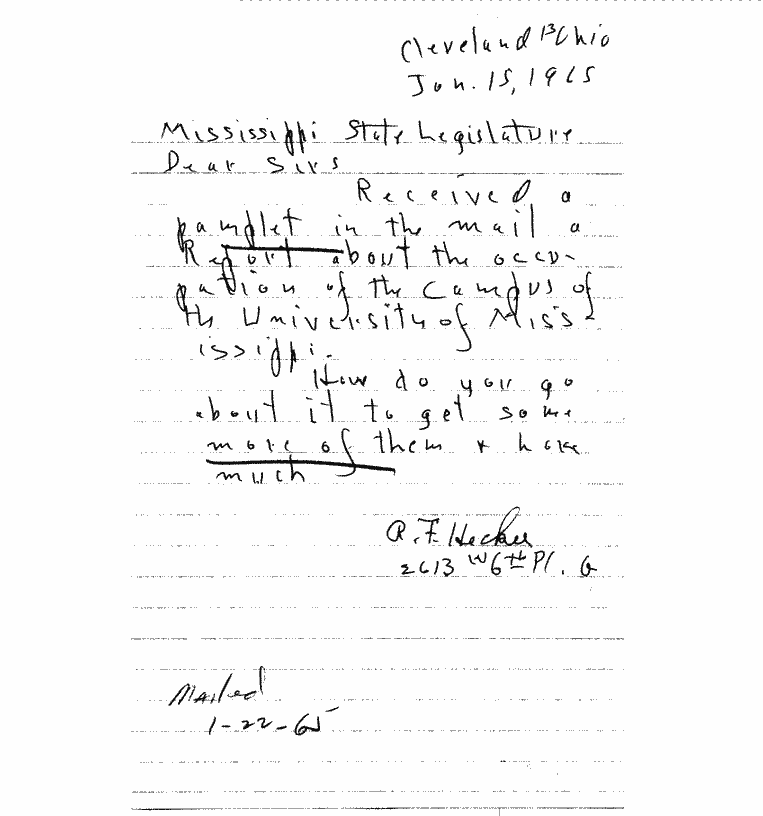 Cleveland 13 Ohio
Jan. 15, 1965
Mississippi State Legislature
Dear Sirs
Received a
pamplet in the mail a
Report about the occu-
pation of the Campus of
the University of Miss-
issippi.
How do you go
about it to get some
more of them & how
much
R. F. Hecker
W 6th Pl.
Mailed
1-22-65